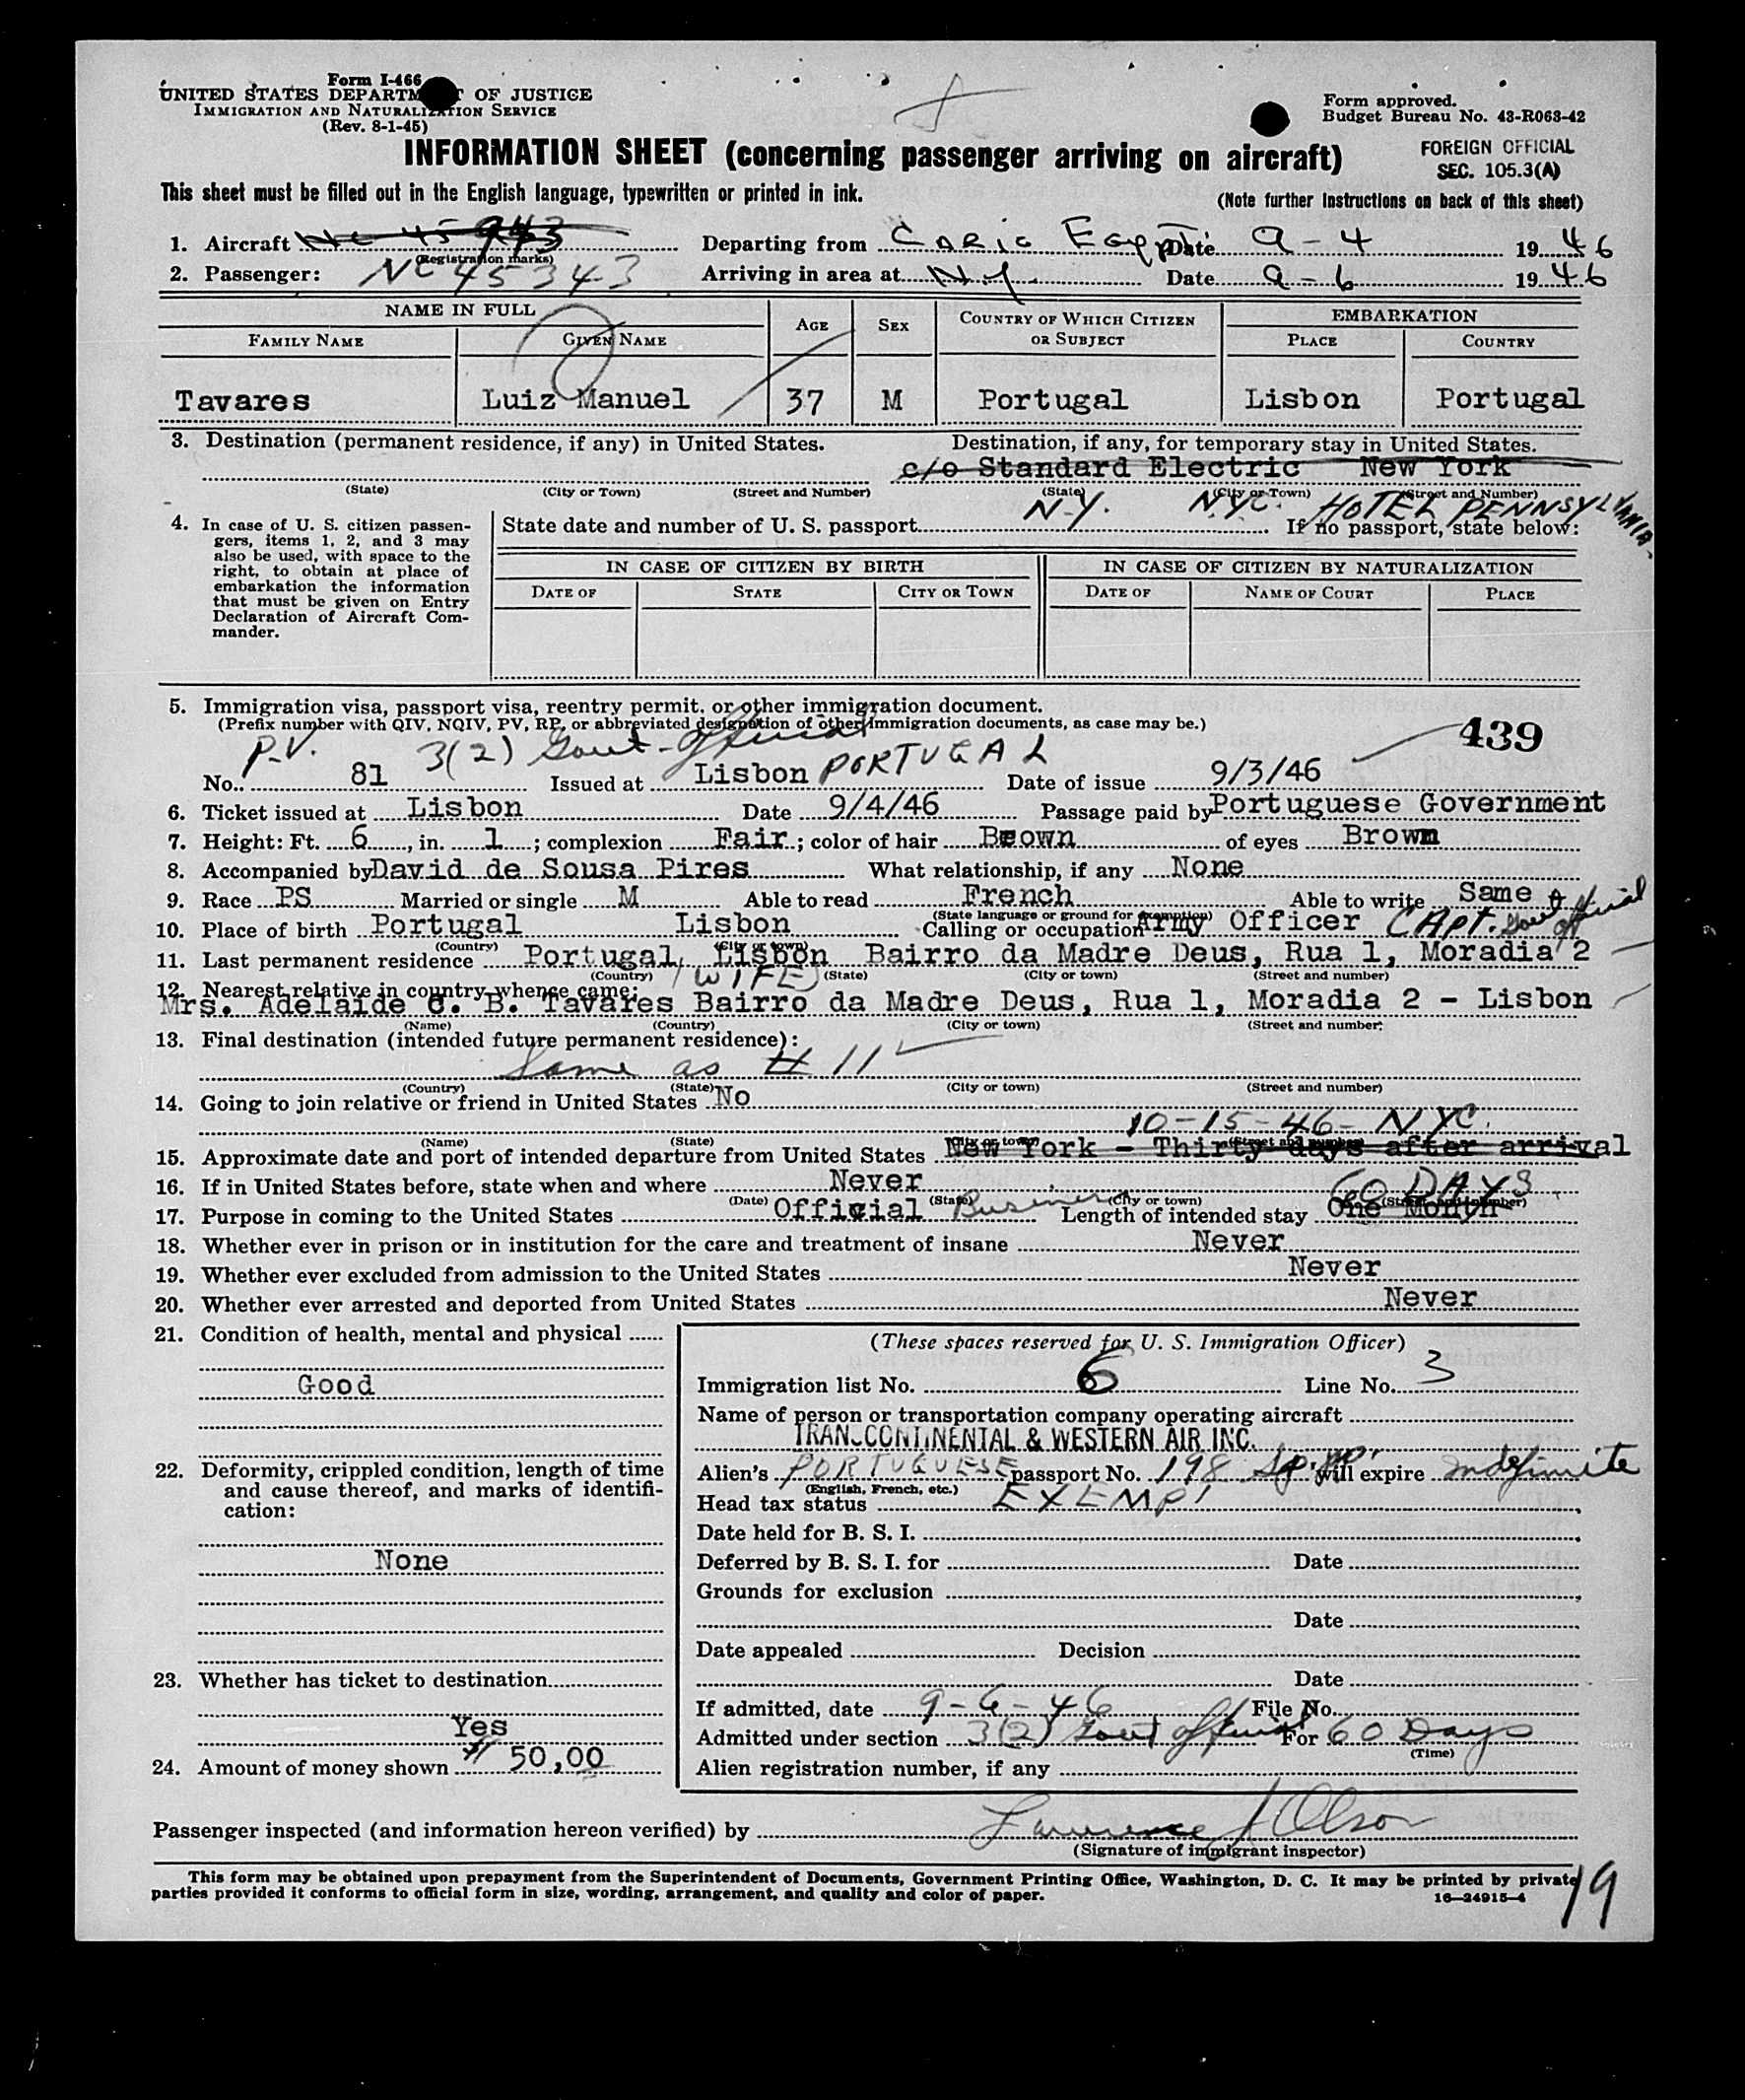 Form I-466
UNITED STATES DEPARTMENT OF JUSTICE
IMMIGRATION AND NATURALIZATION SERVICE
(Rev. 8-1-45)
Form approved.
Budget Bureau No. 43-R063-42
INFORMATION SHEET (concerning passenger arriving on aircraft)
FOREIGN OFFICIAL
SEC. 105.3(A)
This sheet must be filled out in the English language, typewritten or printed in ink.
(Note further instructions on back of this sheet)
1. Aircraft NC 45943 Departing from CARIO EGYPT Date 9-4 1946
(Registration marks)
2. Passenger: NC 45343 Arriving in area at N.Y. Date 9-6 1946
NAME IN FULL AGE SEX COUNTRY OF WHICH CITIZEN OR SUBJECT EMBARKATION
FAMILY NAME GIVEN NAME PLACE COUNTRY
Tavares Luiz Manuel 37 M Portugal Lisbon Portugal
3. Destination (permanent residence, if any) in United States. Destination, if any, for temporary stay in United States.
c/o Standard Electric New York
(State) (City or Town) (Street and Number) (State) (City or Town) (Street and Number)
N.Y. N.Y.C. HOTEL PENNSYLVANIA.
4. In case of U. S. citizen passengers, items 1, 2, and 3 may also be used, with space to the right, to obtain at place of embarkation the information that must be given on Entry Declaration of Aircraft Commander.
State date and number of U. S. passport If no passport, state below:
IN CASE OF CITIZEN BY BIRTH IN CASE OF CITIZEN BY NATURALIZATION
DATE OF STATE CITY OR TOWN DATE OF NAME OF COURT PLACE
5. Immigration visa, passport visa, reentry permit, or other immigration document.
(Prefix number with QIV, NQIV, PV, RP, or abbreviated designation of other immigration documents, as case may be.)
439
P.V. 3(2) Govt-Official
No. 81 Issued at Lisbon PORTUGAL Date of issue 9/3/46
6. Ticket issued at Lisbon Date 9/4/46 Passage paid by Portuguese Government
7. Height: Ft. 6, in. 1; complexion Fair; color of hair Brown of eyes Brown
8. Accompanied by David de Sousa Pires What relationship, if any None
9. Race PS Married or single M Able to read French Able to write Same
(State language or ground for exemption)
10. Place of birth Portugal Lisbon Calling or occupation Army Officer CAPT. Govt Official
(Country) (City or town)
11. Last permanent residence Portugal, Lisbon Bairro da Madre Deus, Rua 1, Moradia 2
(Country) (State) (City or town) (Street and number)
12. Nearest relative in country whence came: (WIFE)
Mrs. Adelaide C. B. Tavares Bairro da Madre Deus, Rua 1, Moradia 2 - Lisbon
(Name) (Country) (City or town) (Street and number)
13. Final destination (intended future permanent residence):
Same as # 11
(Country) (State) (City or town) (Street and number)
14. Going to join relative or friend in United States No
10-15-46- NYC.
(Name) (State) (City or town) (Street and number)
15. Approximate date and port of intended departure from United States New York - Thirty days after arrival
16. If in United States before, state when and where Never
60 DAYS
(Date) (State) (City or town) (Street and number)
17. Purpose in coming to the United States Official Business Length of intended stay One Month
18. Whether ever in prison or in institution for the care and treatment of insane Never
19. Whether ever excluded from admission to the United States Never
20. Whether ever arrested and deported from United States Never
21. Condition of health, mental and physical
Good
22. Deformity, crippled condition, length of time and cause thereof, and marks of identification:
None
23. Whether has ticket to destination
Yes
24. Amount of money shown $ 50,00
(These spaces reserved for U. S. Immigration Officer)
Immigration list No. 6 Line No. 3
Name of person or transportation company operating aircraft
TRANSCONTINENTAL & WESTERN AIR INC.
Alien's PORTUGUESE passport No. 198 will expire indefinite
(English, French, etc.)
Head tax status EXEMPT
Date held for B. S. I.
Deferred by B. S. I. for Date
Grounds for exclusion
Date
Date appealed Decision
Date
If admitted, date 9-6-46 File No.
Admitted under section 3(2) Govt official For 60 Days
(Time)
Alien registration number, if any
Passenger inspected (and information hereon verified) by Lawrence J Olson
(Signature of immigrant inspector)
This form may be obtained upon prepayment from the Superintendent of Documents, Government Printing Office, Washington, D. C. It may be printed by private
parties provided it conforms to official form in size, wording, arrangement, and quality and color of paper.
16—24915-4
19